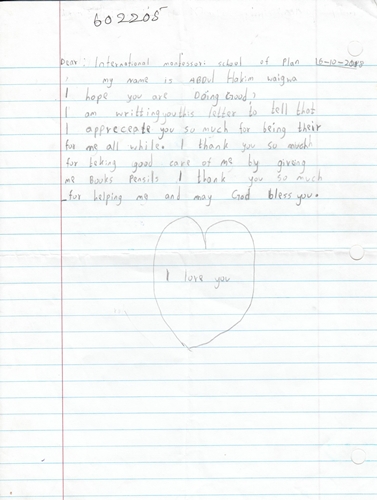 602205
Dear: International montessori school of Plan 16-10-2018
my name is ABDUl Hakim waigwa
I hope you are Doing Good?
I am writting you this letter to tell that
I apprecreate you so much for being their
for me all while. I thank you so much
for teking good care of me by giveng
me Books Pensils I thank you so much
for helping me and may God bless you.
I love you